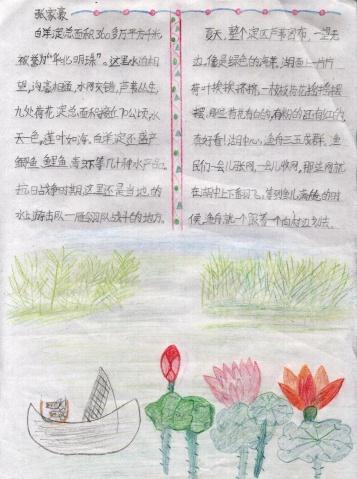 张家豪
白洋淀总面积360多万平方千米,
被誉为"华北明珠"。这里水泊相
望,沟壕相通,水网交错,芦苇丛生,
九处荷花淀总面积接近70公顷,水
天一色,莲叶如海。白洋淀还盛产
鲫鱼 鲤鱼 青虾等几十种水产品。
抗日战争时期,这里还是当地的
水上游击队—雁翎队战斗的地方。
夏天,整个淀区芦苇密布,一望无
边,像是绿色的海洋,湖面上一片片
荷叶挨挨挤挤,一枝枝荷花摇摇
摆。那些荷花有白的,有粉的还有红的,
真好看!湖中心,渔舟三五成群,渔
民们一会儿张网,一会儿收网,那些网就
在湖中上下翻飞,等到鱼儿满舱的时
候,渔舟就一个跟着一个向村边划去。